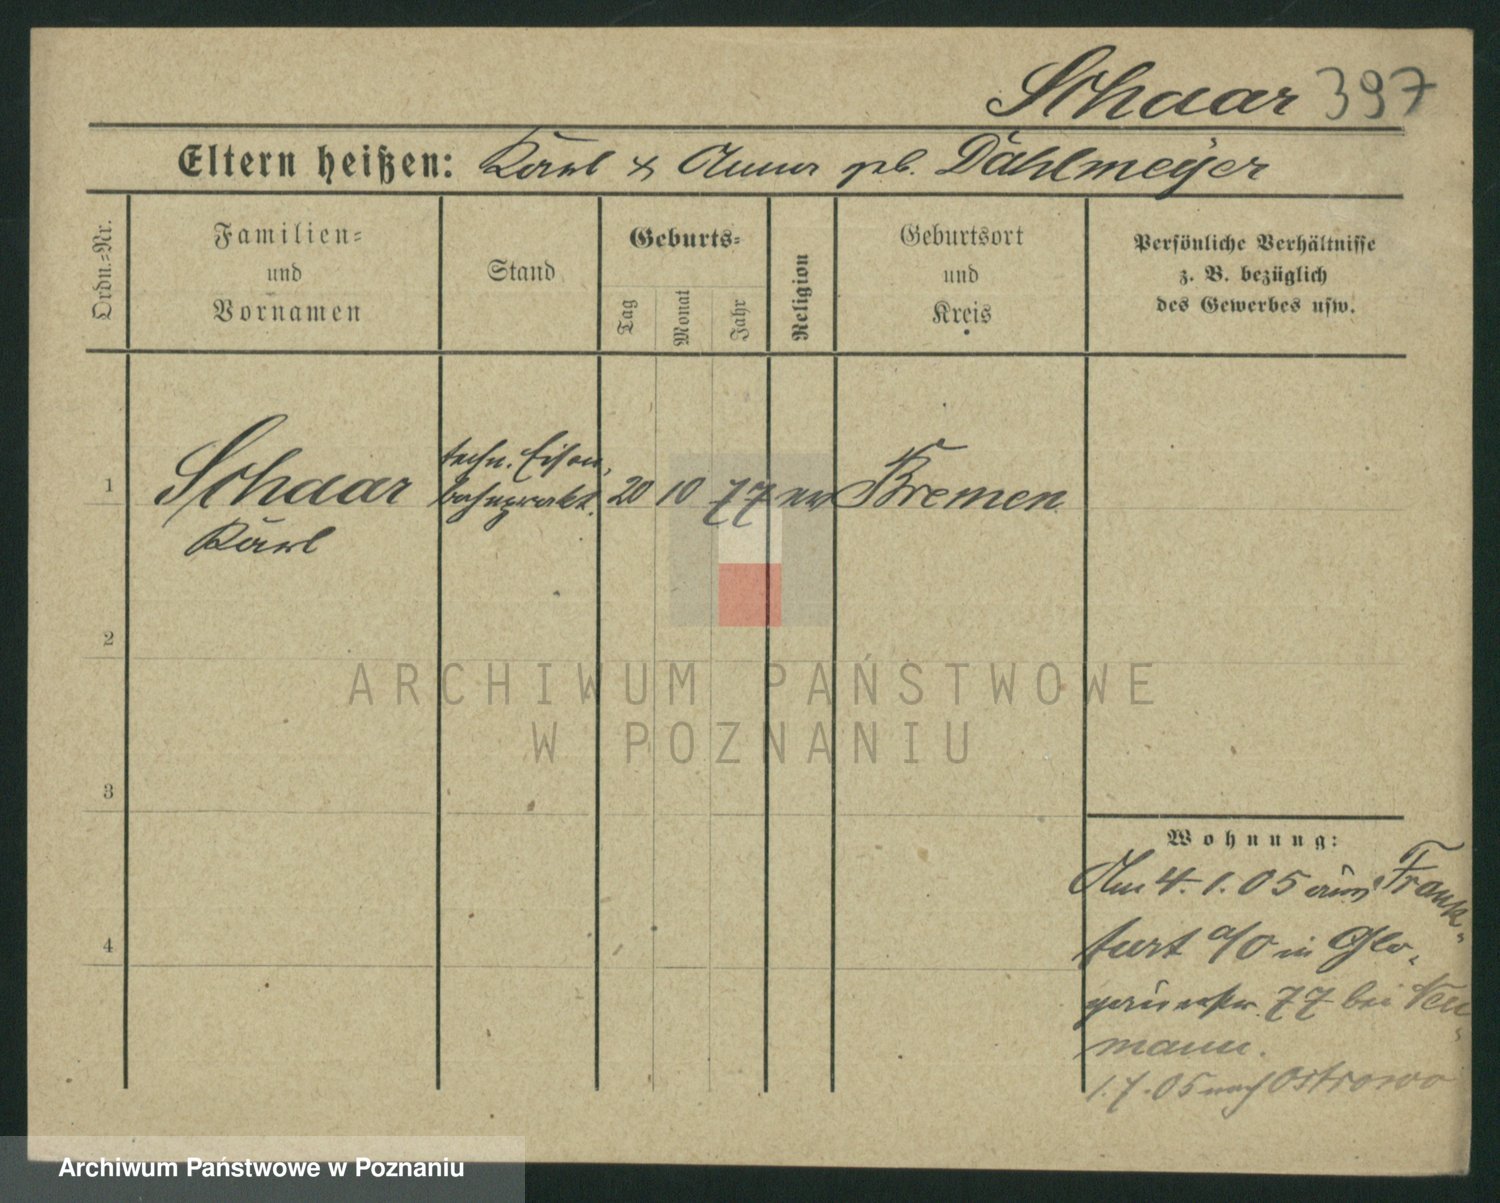 Schaar 397
Eltern heißen: Karl & Anna geb. Dahlmeyer
Ordn.-Nr.
Familien-
und
Vornamen
Stand
Geburts-
Tag
Monat
Jahr
Religion
Geburtsort
und
Kreis
Persönliche Verhältnisse
z. B. bezüglich
des Gewerbes usw.
1
Schaar
Karl
techn. Eisen-
bahnprakt.
20
10
77
ev
Bremen
2
3
4
ARCHIWUM PAŃSTWOWE
W POZNANIU
Wohnung:
Am 4.1.05 aus Frank-
furt a/O in Glo-
gauerstr. 77 bei Neu-
mann.
1.7.05 nach Ostrowo
Archiwum Państwowe w Poznaniu